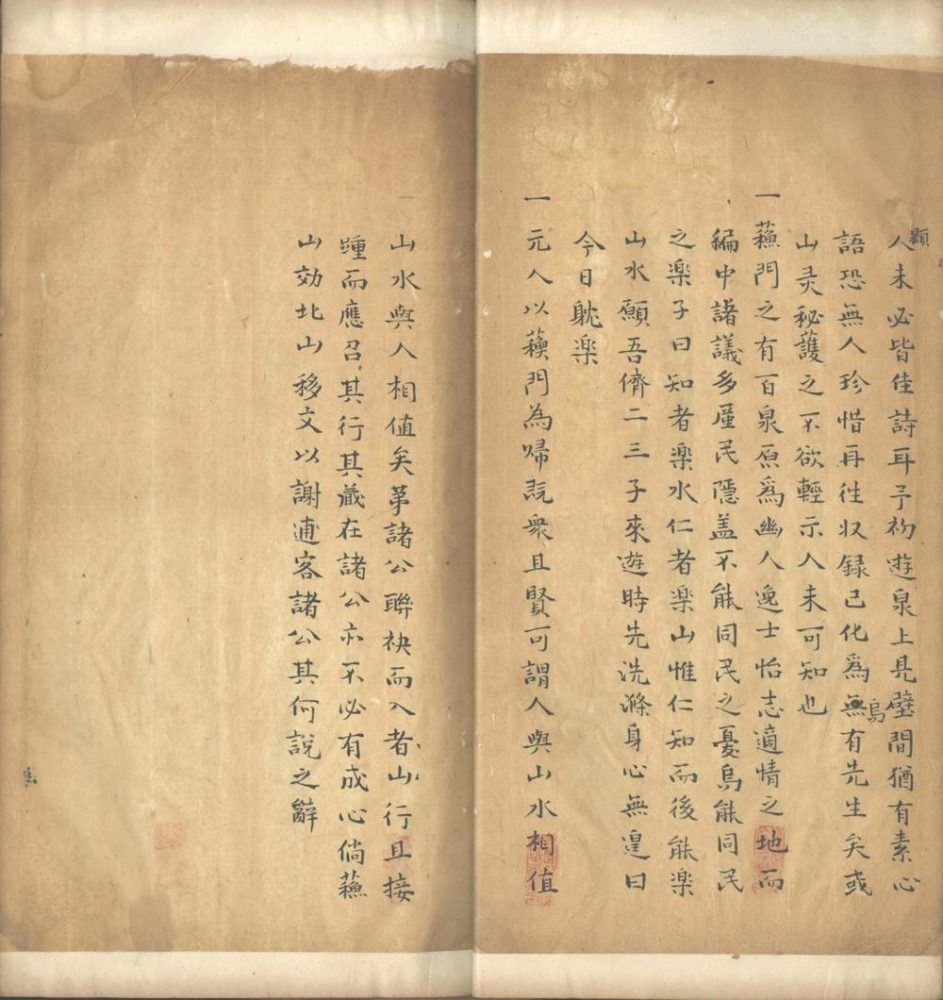 顯
人未必皆佳詩耳予初遊泉上見壁間猶有素心
語恐無人珍惜再徃収録已化爲無有先生矣或
烏
山灵秘護之不欲輕示人未可知也
一蘓門之有百泉原爲幽人逸士怡志適情之地而
編中諸議多厪民隱盖不能同民之憂烏能同民
之楽子曰知者楽水仁者楽山惟仁知而後能楽
山水願吾儕二三子來遊時先洗滌身心無遑曰
今日躭楽
一元人以蘓門為歸既衆且賢可謂人與山水相值
山水與人相值矣苐諸公聯袂而入者山行且接
踵而應召其行其藏在諸公亦不必有成心倘蘓
山效北山移文以謝逋客諸公其何說之辭